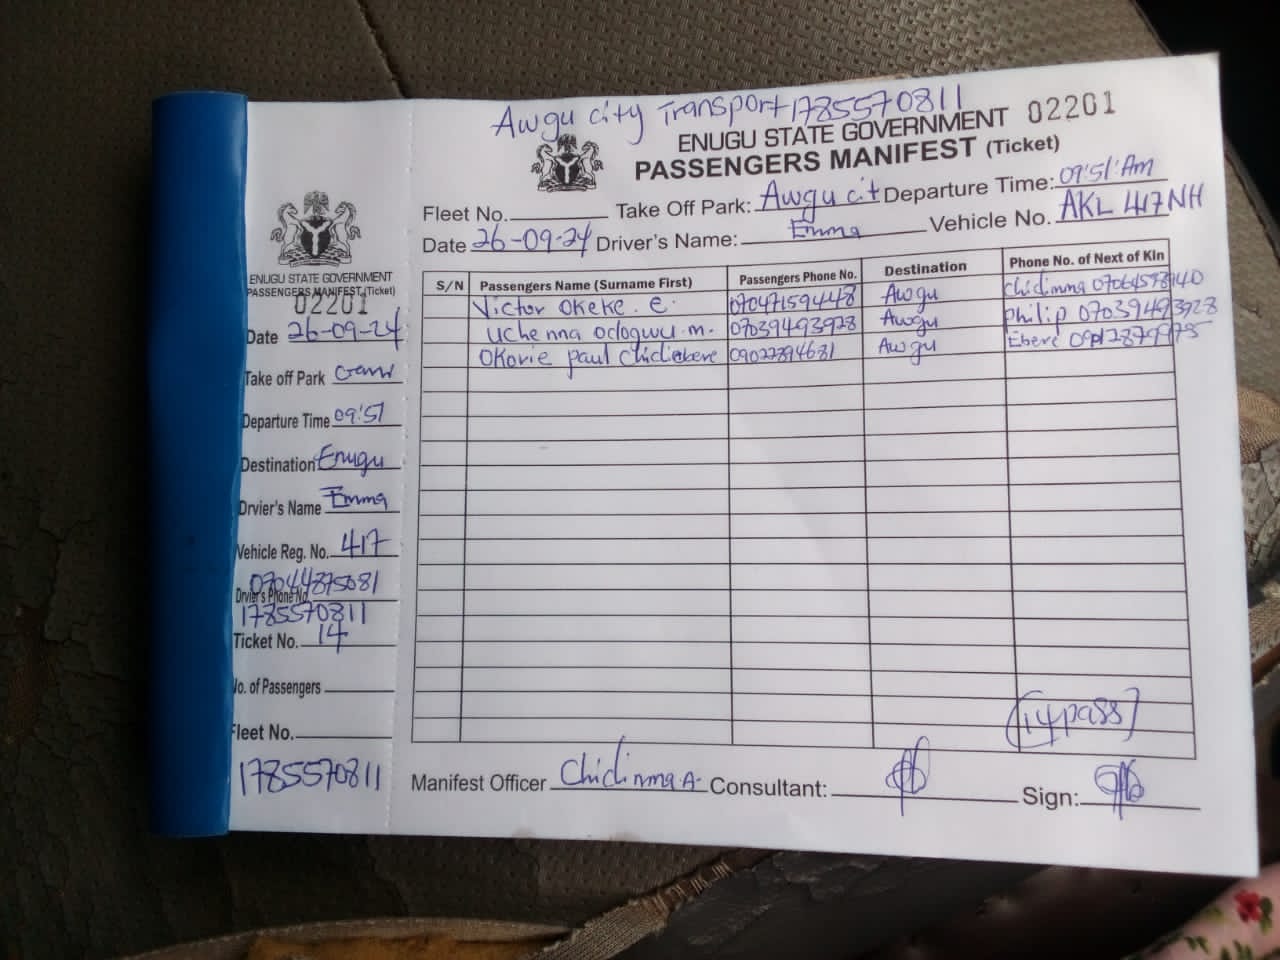 Awgu city Transport 1785570811
ENUGU STATE GOVERNMENT 02201
PASSENGERS MANIFEST (Ticket)
Fleet No. Take Off Park: Awgu cit Departure Time: 09:51:Am
Date 26-09-24 Driver's Name: Emma Vehicle No. AKL 417NH
S/N Passengers Name (Surname First) Passengers Phone No. Destination Phone No. of Next of Kin
Victor Okeke. E. 07047159448 Awgu Chidimma
Uchenna Odogwu.m. 07039493928 Awgu Philip 07039493928
Okorie paul Chidiebere 09022894681 Awgu Ebere
(14pass)
Manifest Officer Chidinma.A. Consultant: Sign:
ENUGU STATE GOVERNMENT
PASSENGERS MANIFEST (Ticket)
02201
Date 26-09-24
Take off Park
Departure Time 09:51
Destination Enugu
Drvier's Name Emma
Vehicle Reg. No. 417
07044875081
Drvier's Phone No.
1785570811
Ticket No. 14
No. of Passengers
Fleet No.
1785570811